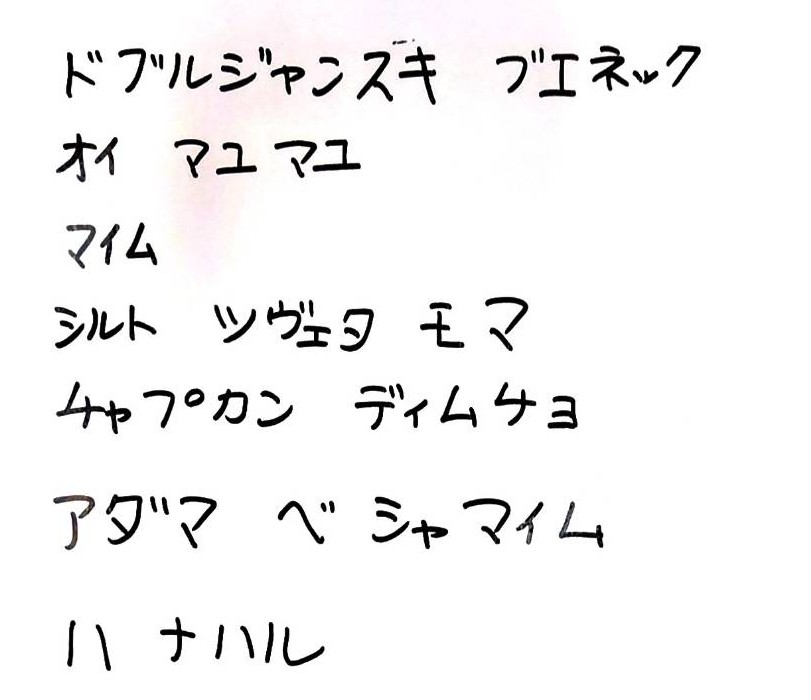 ドブルジャンスキ ブエネック
オイ マユ マユ
マイム
シルト ツヴェタ モマ
チャプカン ディムチョ
アダマ ベ シャマイム
ハ ナハル